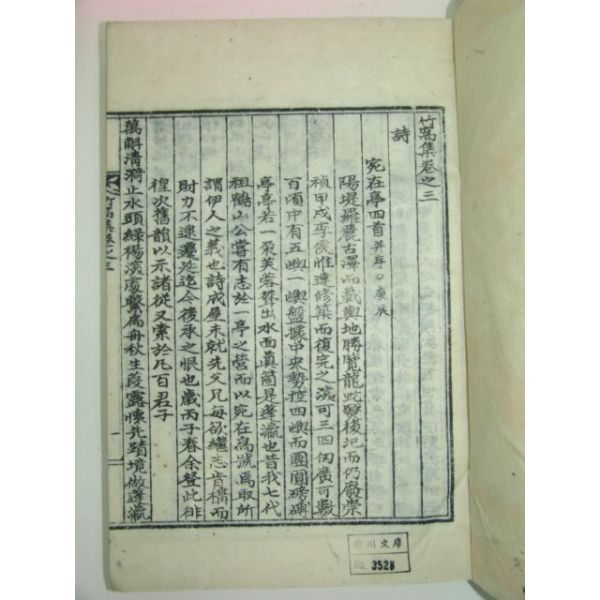 竹窩集卷之三
詩
宛在亭四首 幷序○庚辰
陽堤羅農古澤而載輿地勝覽龍蛇廢後汜而仍廢崇
禎甲戌李侯惟達修築而復完之深可三四仞廣可數
百頃中有五嶼一嶼盤據中央勢控四嶼而團圓磅礴
亭亭若一朶芙蓉聳出水面眞箇是蓬瀛也昔我七代
祖鶴山公嘗有志於一亭之營而以宛在爲號爲取所
謂伊人之義也詩成屋未就先父兄每欲繼志肯構而
財力不逮遷延迄今後承之恨也歲丙子春余登此徘
徨次舊韻以示諸從又索於凡百君子
萬斛淸漪止水頭綠楊深處繫扁舟秋生葭露懷先蹟境倣蓬瀛
竹窩集卷之三
一
文庫
No. 3528